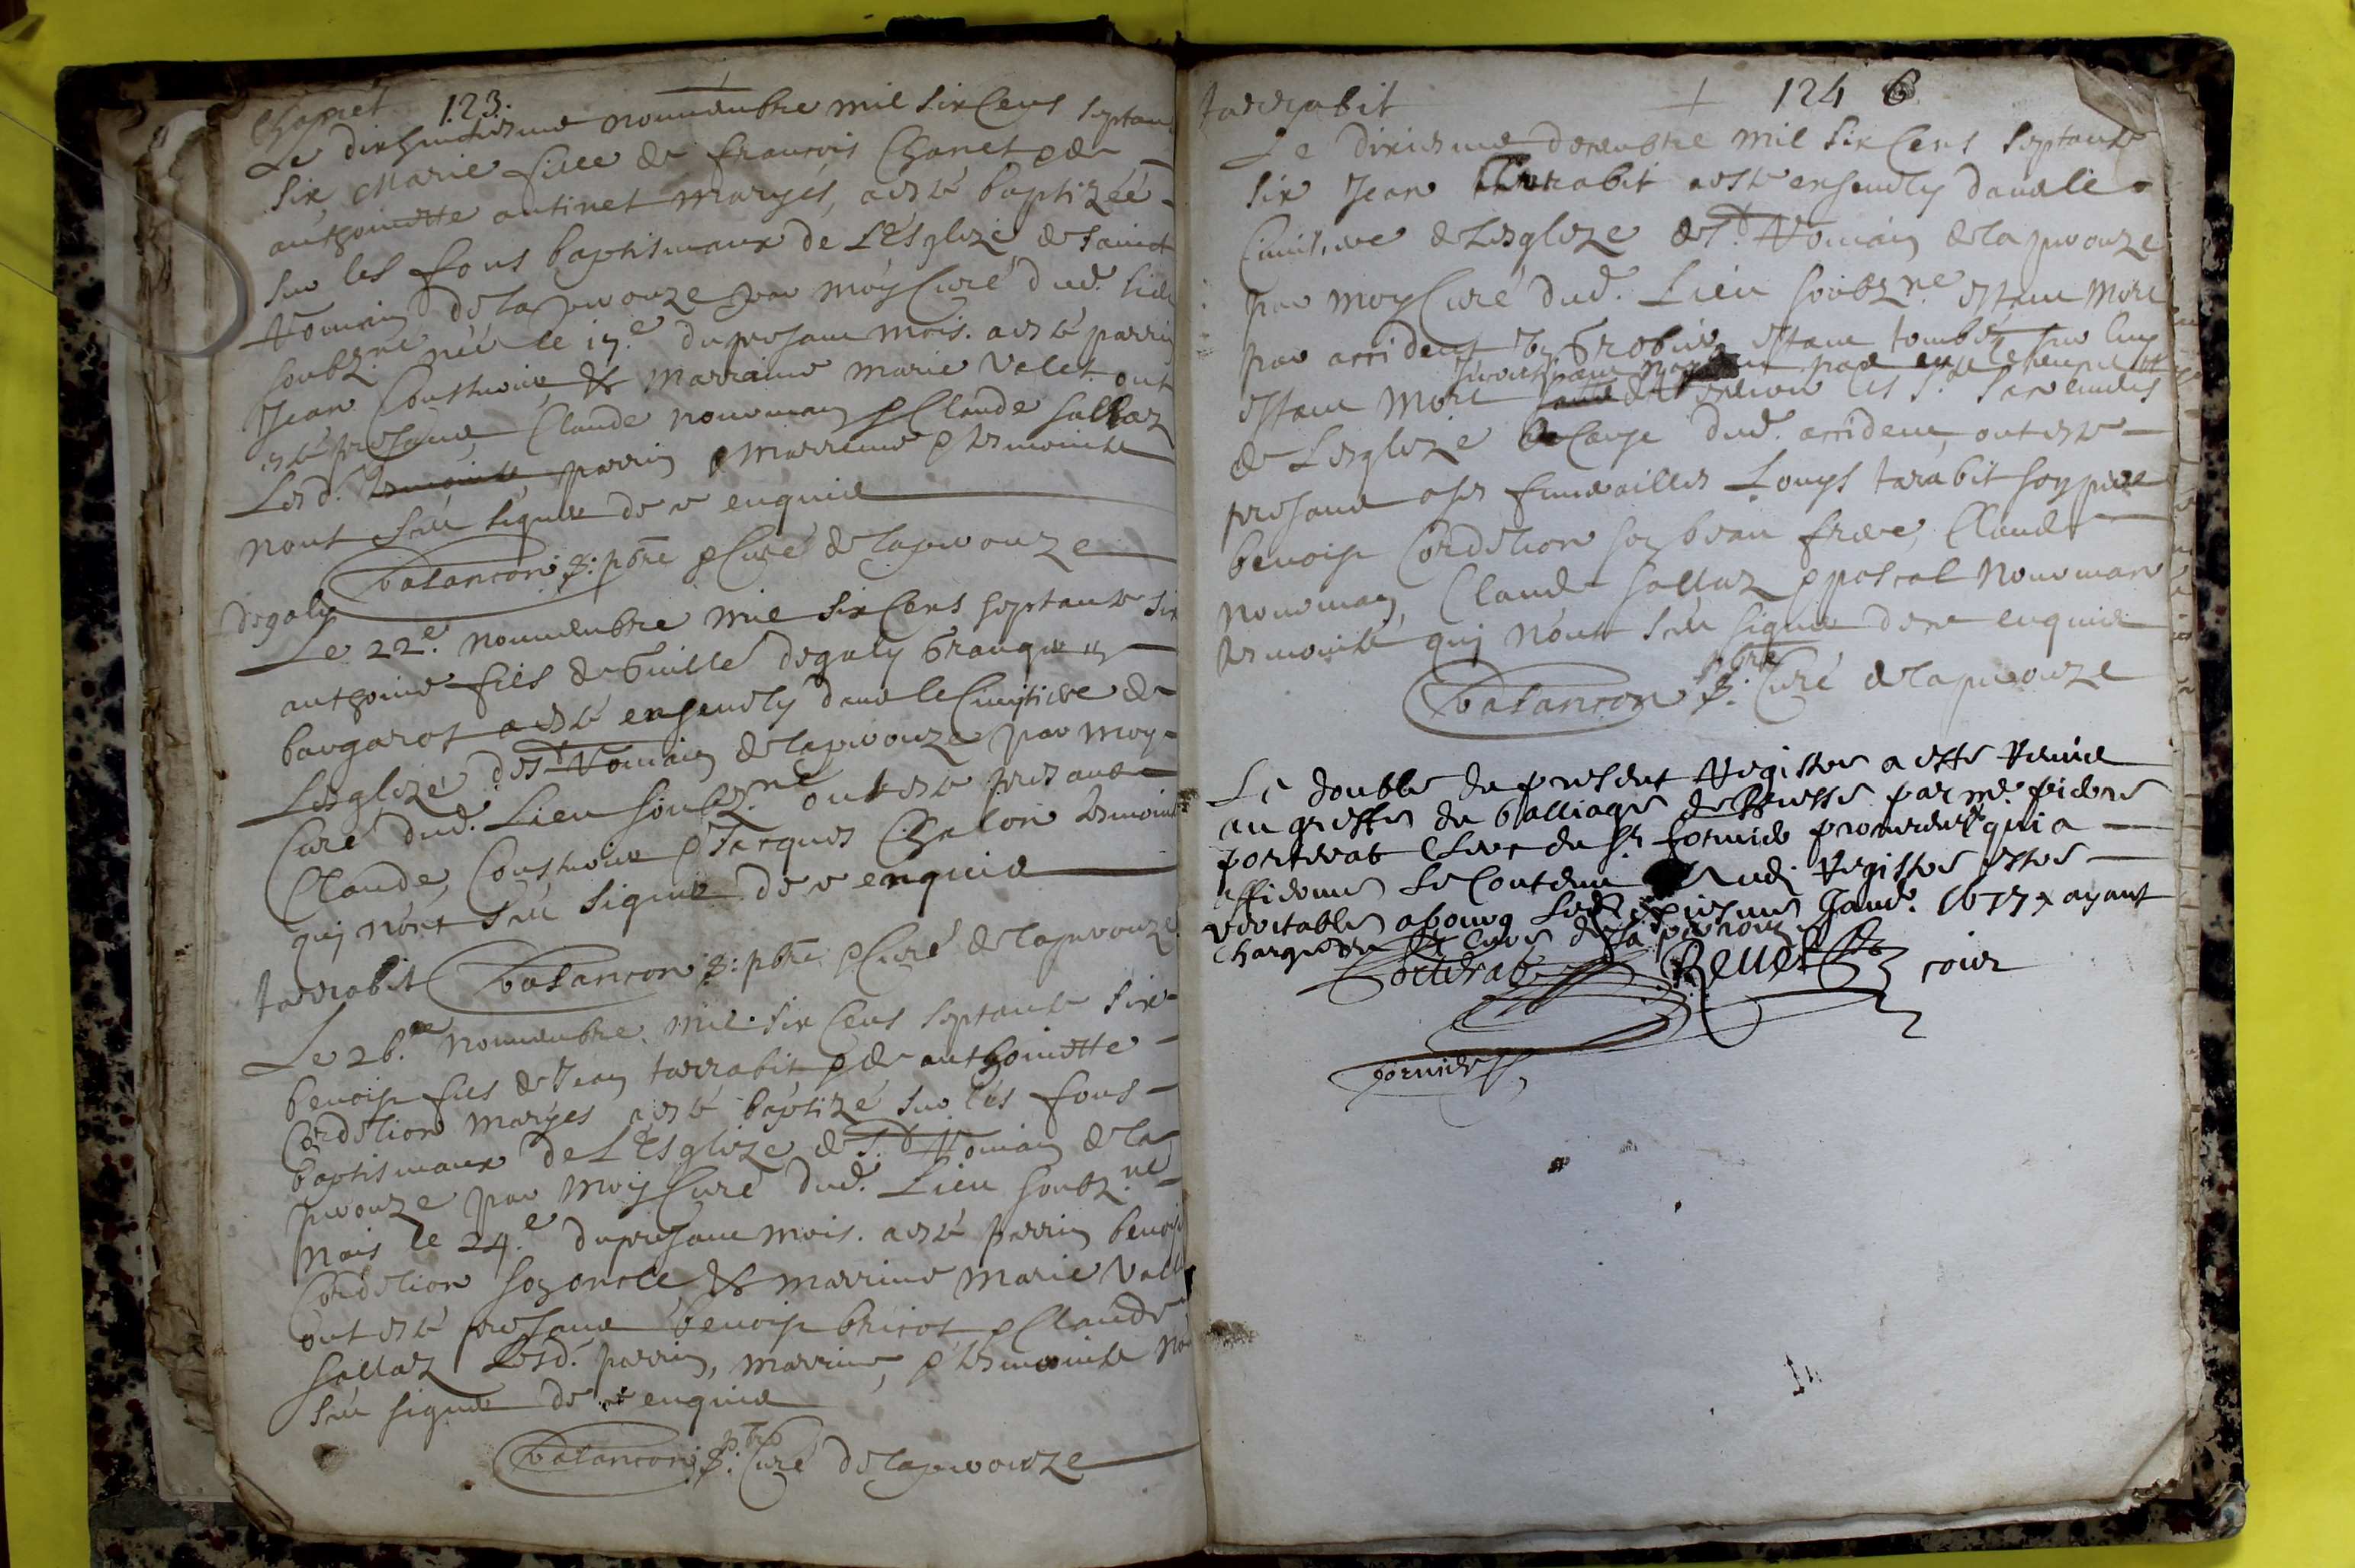 Chanet 123.
Le dixhuictiesme nouuembre mil six Cens septan
six, Marie fille de francois Chanet & de
anthoinette autinet maryés, a esté baptizéé
sur les fons baptismaux de L'Esglize de sainct
Romain de la peyrouze par moy Curé dud. lieu
soubz.né née le 17.e du presant mois. a esté parrin
Jean Cousturier, & marraine marie Valet ont
esté presans Claude nouuman & Claude sallaz
Lesd. tesmoints parrin & marraine & tesmoints
nont sceu signer de ce enquis
balancon p: pbre & Curé de lapeyrouze
degaly
Le 22.e nouuembre mil six Cens septante six
anthoine fils de Guille degaly Grangier
baugarot a esté enseuely dans le Cimitiere de
Lesglize de St Romain de lapeyrouze par moy
Curé dud. Lieu soubz.né ont esté presans
Claude, Cousturier & Jacques Chalon tesmoints
quj nont sceu signer de ce enquis
tarrabit balancon p: pbre & Curé de lapeyrouze
Le 26.me nouuembre mil six Cens septante six
benoist fils de Jean tarrabit & de anthoinette
Cordelion maryes a esté baptizé sur les fons
baptismaux de L'Esglize de St Romain de la
peyrouze par moy Curé dud. Lieu soubz.né
nais le 24.e du presant mois. a esté parrin benoist
Cordelion son oncle & marrine marie Vall
ont esté presans benoist bricot & Claude
sallaz Lesd. parrin, marrine, & tesmoints no
sceu signer de ce enquis
balancon p: pbre Curé de lapeyrouze
tarrabit + 124 6
Le dixiesme decembre mil six Cens septante
six Jean tarrabit a esté enseuely dans le
Cimitiere de Lesglize de St Romain de lapeyrouze
par moy Curé dud. Lieu soubz.né estant mort
par accident estant tombé sur luy
estant mort les st sacremens
de Lesglize a Cause dud. accident, ont esté
presans a ses funerailles Louys tarabit son pere
benoist Cordelion son beau frere, Claude
nouuman, Claude sallaz & pascal nouuman
tesmoints quj nont sceu signer de ce enquis
balancon p: pbre Curé de lapeyrouze
Le double du present Registre a esté remis
au greffe du balliage de Bresse par me. pierre
porterat Clerc du sr fornier procureur qui a
affirmé le Contenu aud. Registre estre
veritable a bourg led. Janu. 1677 ayant
charge du sr Curé de la peyrouze
Porterat
fornier